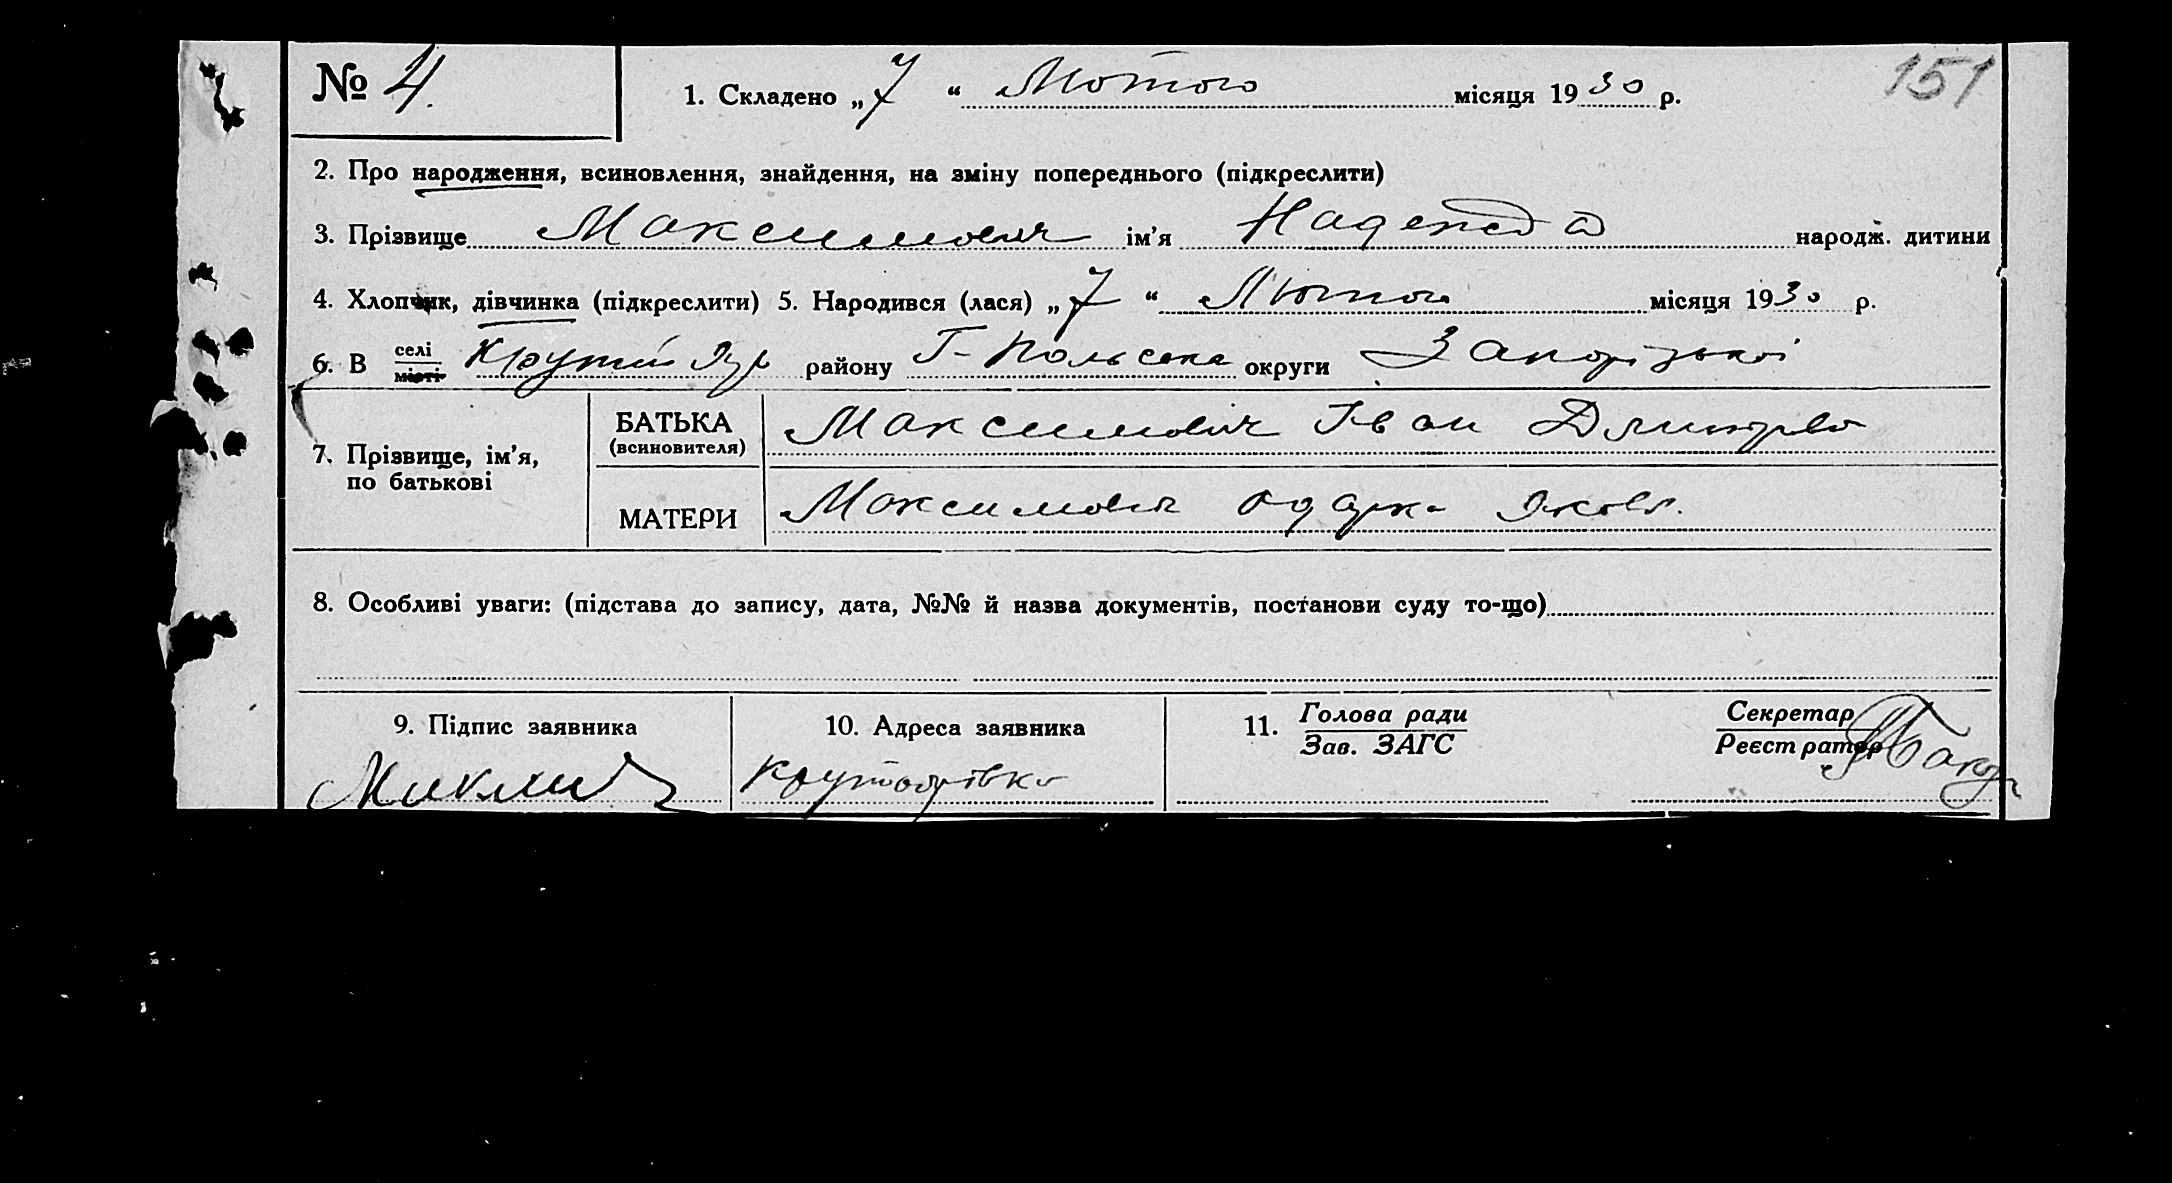 № 4. 1. Складено „7“ Лютого місяця 1930 р. 151
2. Про народження, всиновлення, знайдення, на зміну попереднього (підкреслити)
3. Прізвище Максимович ім’я Надежда народж. дитини
4. Хлопчик, дівчинка (підкреслити) 5. Народився (лася) „7“ Лютого місяця 1930 р.
6. В селі місті Крутий Яр району Г-Польська округи Запорізької
7. Прізвище, ім’я, по батькові
БАТЬКА (всиновителя) Максимович Іван
МАТЕРИ Максимович Одарка Яковл.
8. Особливі уваги: (підстава до запису, дата, №№ й назва документів, постанови суду то-що)
9. Підпис заявника 10. Адреса заявника 11. Голова ради Зав. ЗАГС Секретар Реєстратор